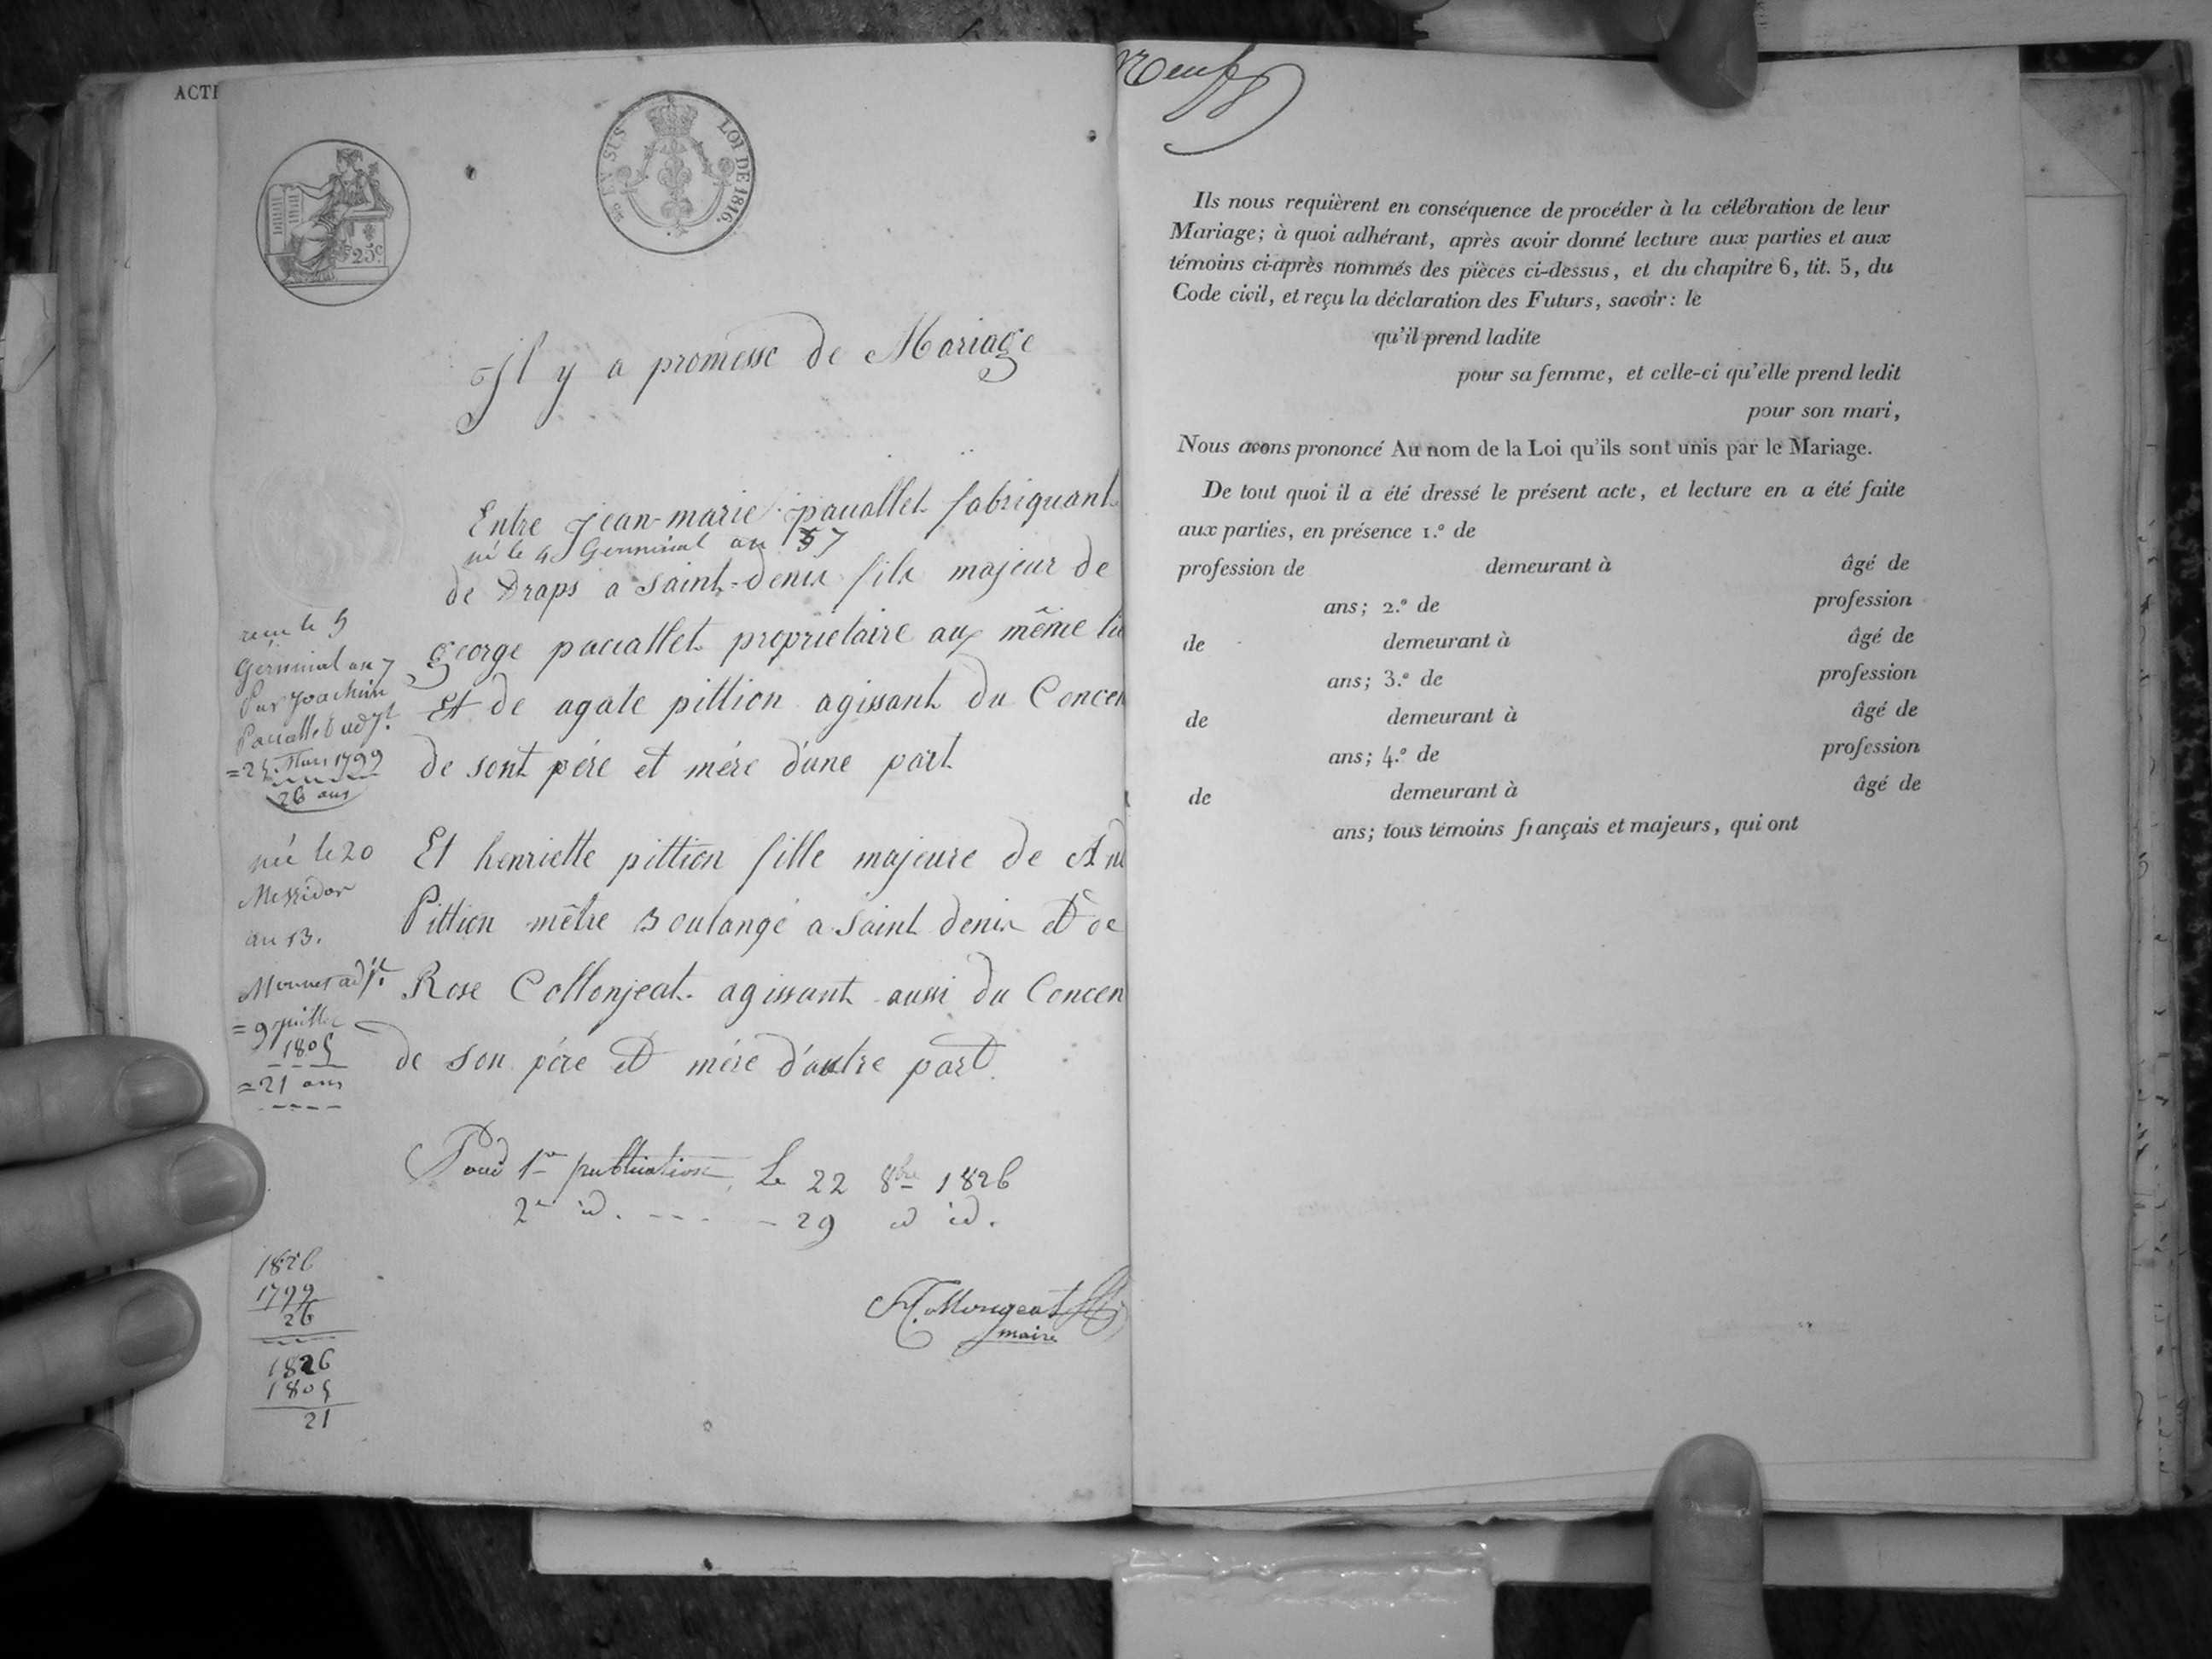 ACTI
LOI DE 1816.
25c.
Il y a promesse de Mariage
Entre jean-marie pauallet fabriquant
né le 4 Germinal an 7
de Draps a saint-denis fils majeur de
george pauallet proprietaire au même
Et de agate pittion agissant du Concen
de sont pére et mére d'une part
reçu le 5
Germinal an 7
Par Joachim
Pauallet adjt.
= 25 Mars 1799
26 ans
Et henriette pittion fille majeure de
Pittion mêtre Boulangé a saint denis et de
Rose Collonjeat agissant aussi du Concen
de son pére et mére d'autre part
née le 20
Messidor
an 13.
Monnet adjt.
= 9 juillet
1805
= 21 ans
Pour 1re publication, Le 22 8bre 1826
2e id. - - - - 29 id id.
Collongeat
maire
1826
1799
26
1826
1805
21
Neuf
Ils nous requièrent en conséquence de procéder à la célébration de leur
Mariage; à quoi adhérant, après avoir donné lecture aux parties et aux
témoins ci-après nommés des pièces ci-dessus, et du chapitre 6, tit. 5, du
Code civil, et reçu la déclaration des Futurs, savoir: le
qu'il prend ladite
pour sa femme, et celle-ci qu'elle prend ledit
pour son mari,
Nous avons prononcé Au nom de la Loi qu'ils sont unis par le Mariage.
De tout quoi il a été dressé le présent acte, et lecture en a été faite
aux parties, en présence 1.º de
profession de demeurant à âgé de
ans; 2.º de profession
de demeurant à âgé de
ans; 3.º de profession
de demeurant à âgé de
ans; 4.º de profession
de demeurant à âgé de
ans; tous témoins français et majeurs, qui ont